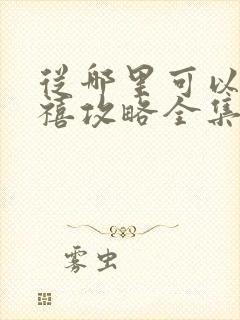 從哪里可以
禧攻略全集
雾虫